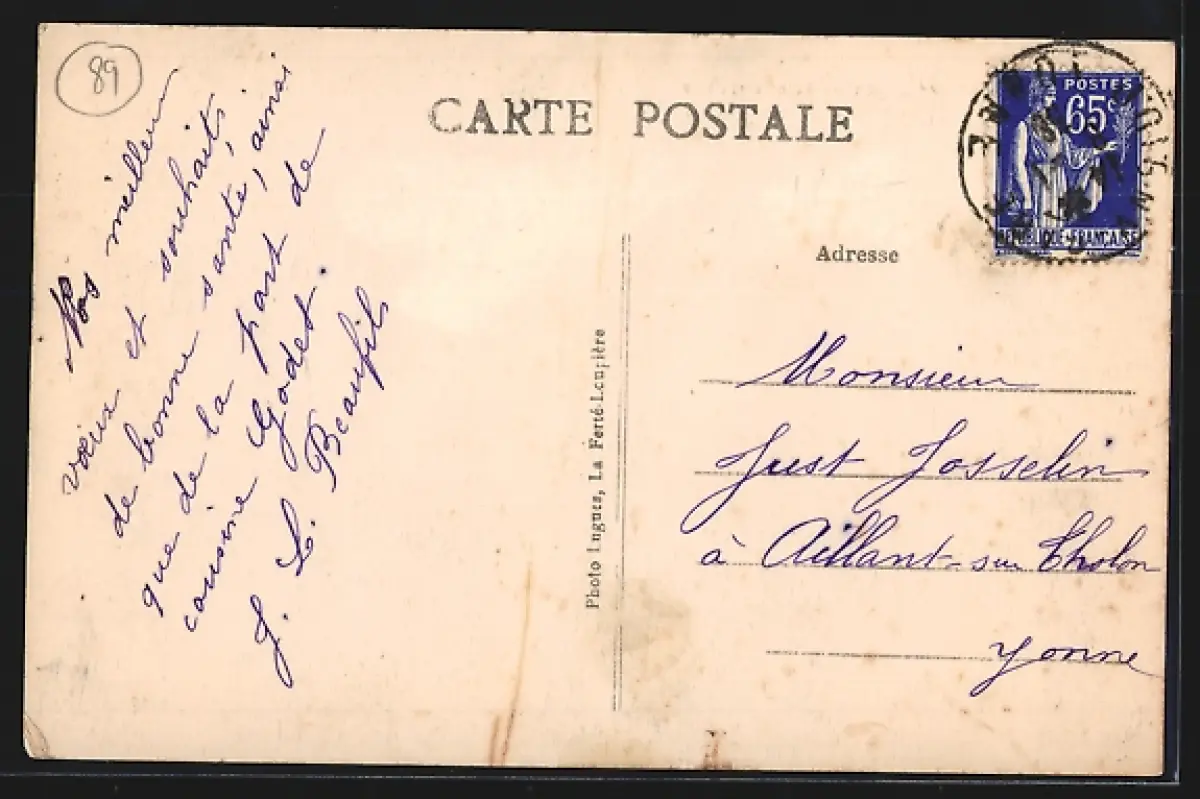 89
CARTE POSTALE
POSTES
65c
REPUBLIQUE FRANÇAISE
Adresse
Nos meilleurs
voeux et souhaits
de bonne santé, ainsi
que de la part de
cousine Godet.
J. L. Beaufils
Photo Lugues, La Ferté-Loupière
Monsieur
Just Josselin
à Aillant-sur Tholon
Yonne